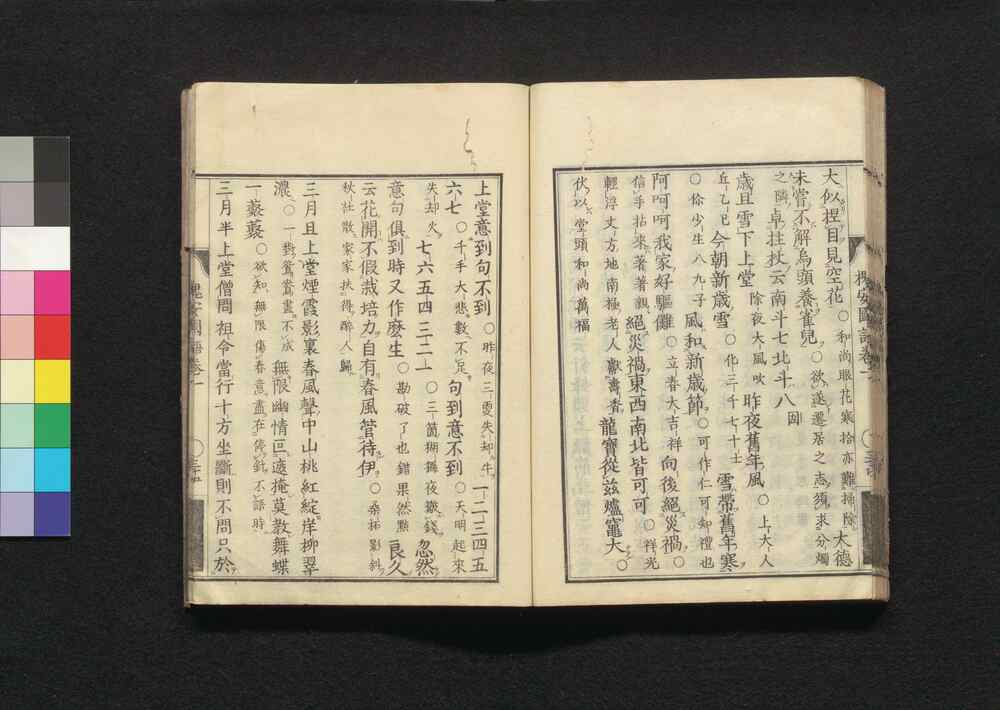 大似捏目見空花○和尚眼花寒拾亦難掃除大德
未嘗不解為頭養雀兒○欲遂遷居之志須求分燭
之隣卓拄杖云南斗七北斗八
歲旦雪下上堂除夜大風吹昨夜舊年風○上大人
丘乙巳今朝新歲雪○化三千七十士雪帶舊年寒
○你少生八九子風和新歲節○可作仁可知禮也
阿呵呵我家好驅儺○立春大吉祥向後絕災禍○
信手拈來著著親絕災禍東西南北皆可可○祥光
輕浮丈方地南極老人獻壽香龍寶從玆爐竃大○
伏以堂頭和尚萬福
槐安國語卷一
上堂意到句不到○昨夜三更失却牛一二三四五
六七○千手大悲數不足句到意不到○天明起來
失却火七六五四三二一○三箇猢猻夜簸錢忽然
意句俱到時又作麼生○勘破了也錯果然點良久
云花開不假栽培力自有春風管待伊○桑柘影斜
秋社散家家扶得醉人歸
三月旦上堂煙霞影裏春風聲中山桃紅綻岸柳翠
濃○一對鴛鴦畫不成無限幽情叵遮掩莫教舞蝶
一䙚䙚○欲知無限傷春意盡在停針不語時
三月半上堂僧問祖令當行十方坐斷則不問只於
槐安國語卷一